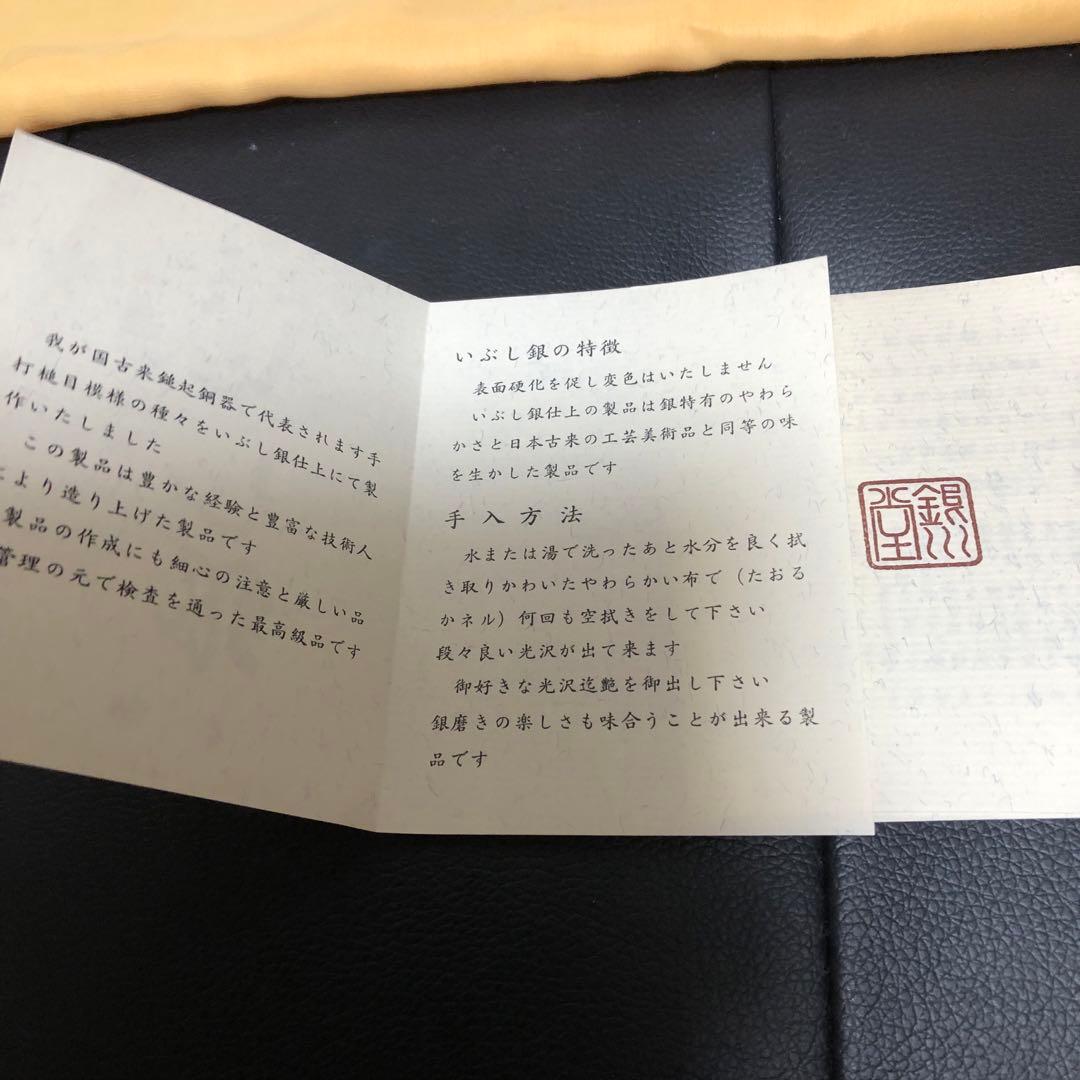 我が国古来鎚起銅器で代表されます手
打槌目模様の種々をいぶし銀仕上にて製
作いたしました
この製品は豊かな経験と豊富な技術人
により造り上げた製品です
製品の作成にも細心の注意と厳しい品
管理の元で検査を通った最高級品です
いぶし銀の特徴
表面硬化を促し変色はいたしません
いぶし銀仕上の製品は銀特有のやわら
かさと日本古来の工芸美術品と同等の味
を生かした製品です
手入方法
水または湯で洗ったあと水分を良く拭
き取りかわいたやわらかい布で（たおる
かネル）何回も空拭きをして下さい
段々良い光沢が出て来ます
御好きな光沢迄艶を御出し下さい
銀磨きの楽しさも味合うことが出来る製
品です
銀堂